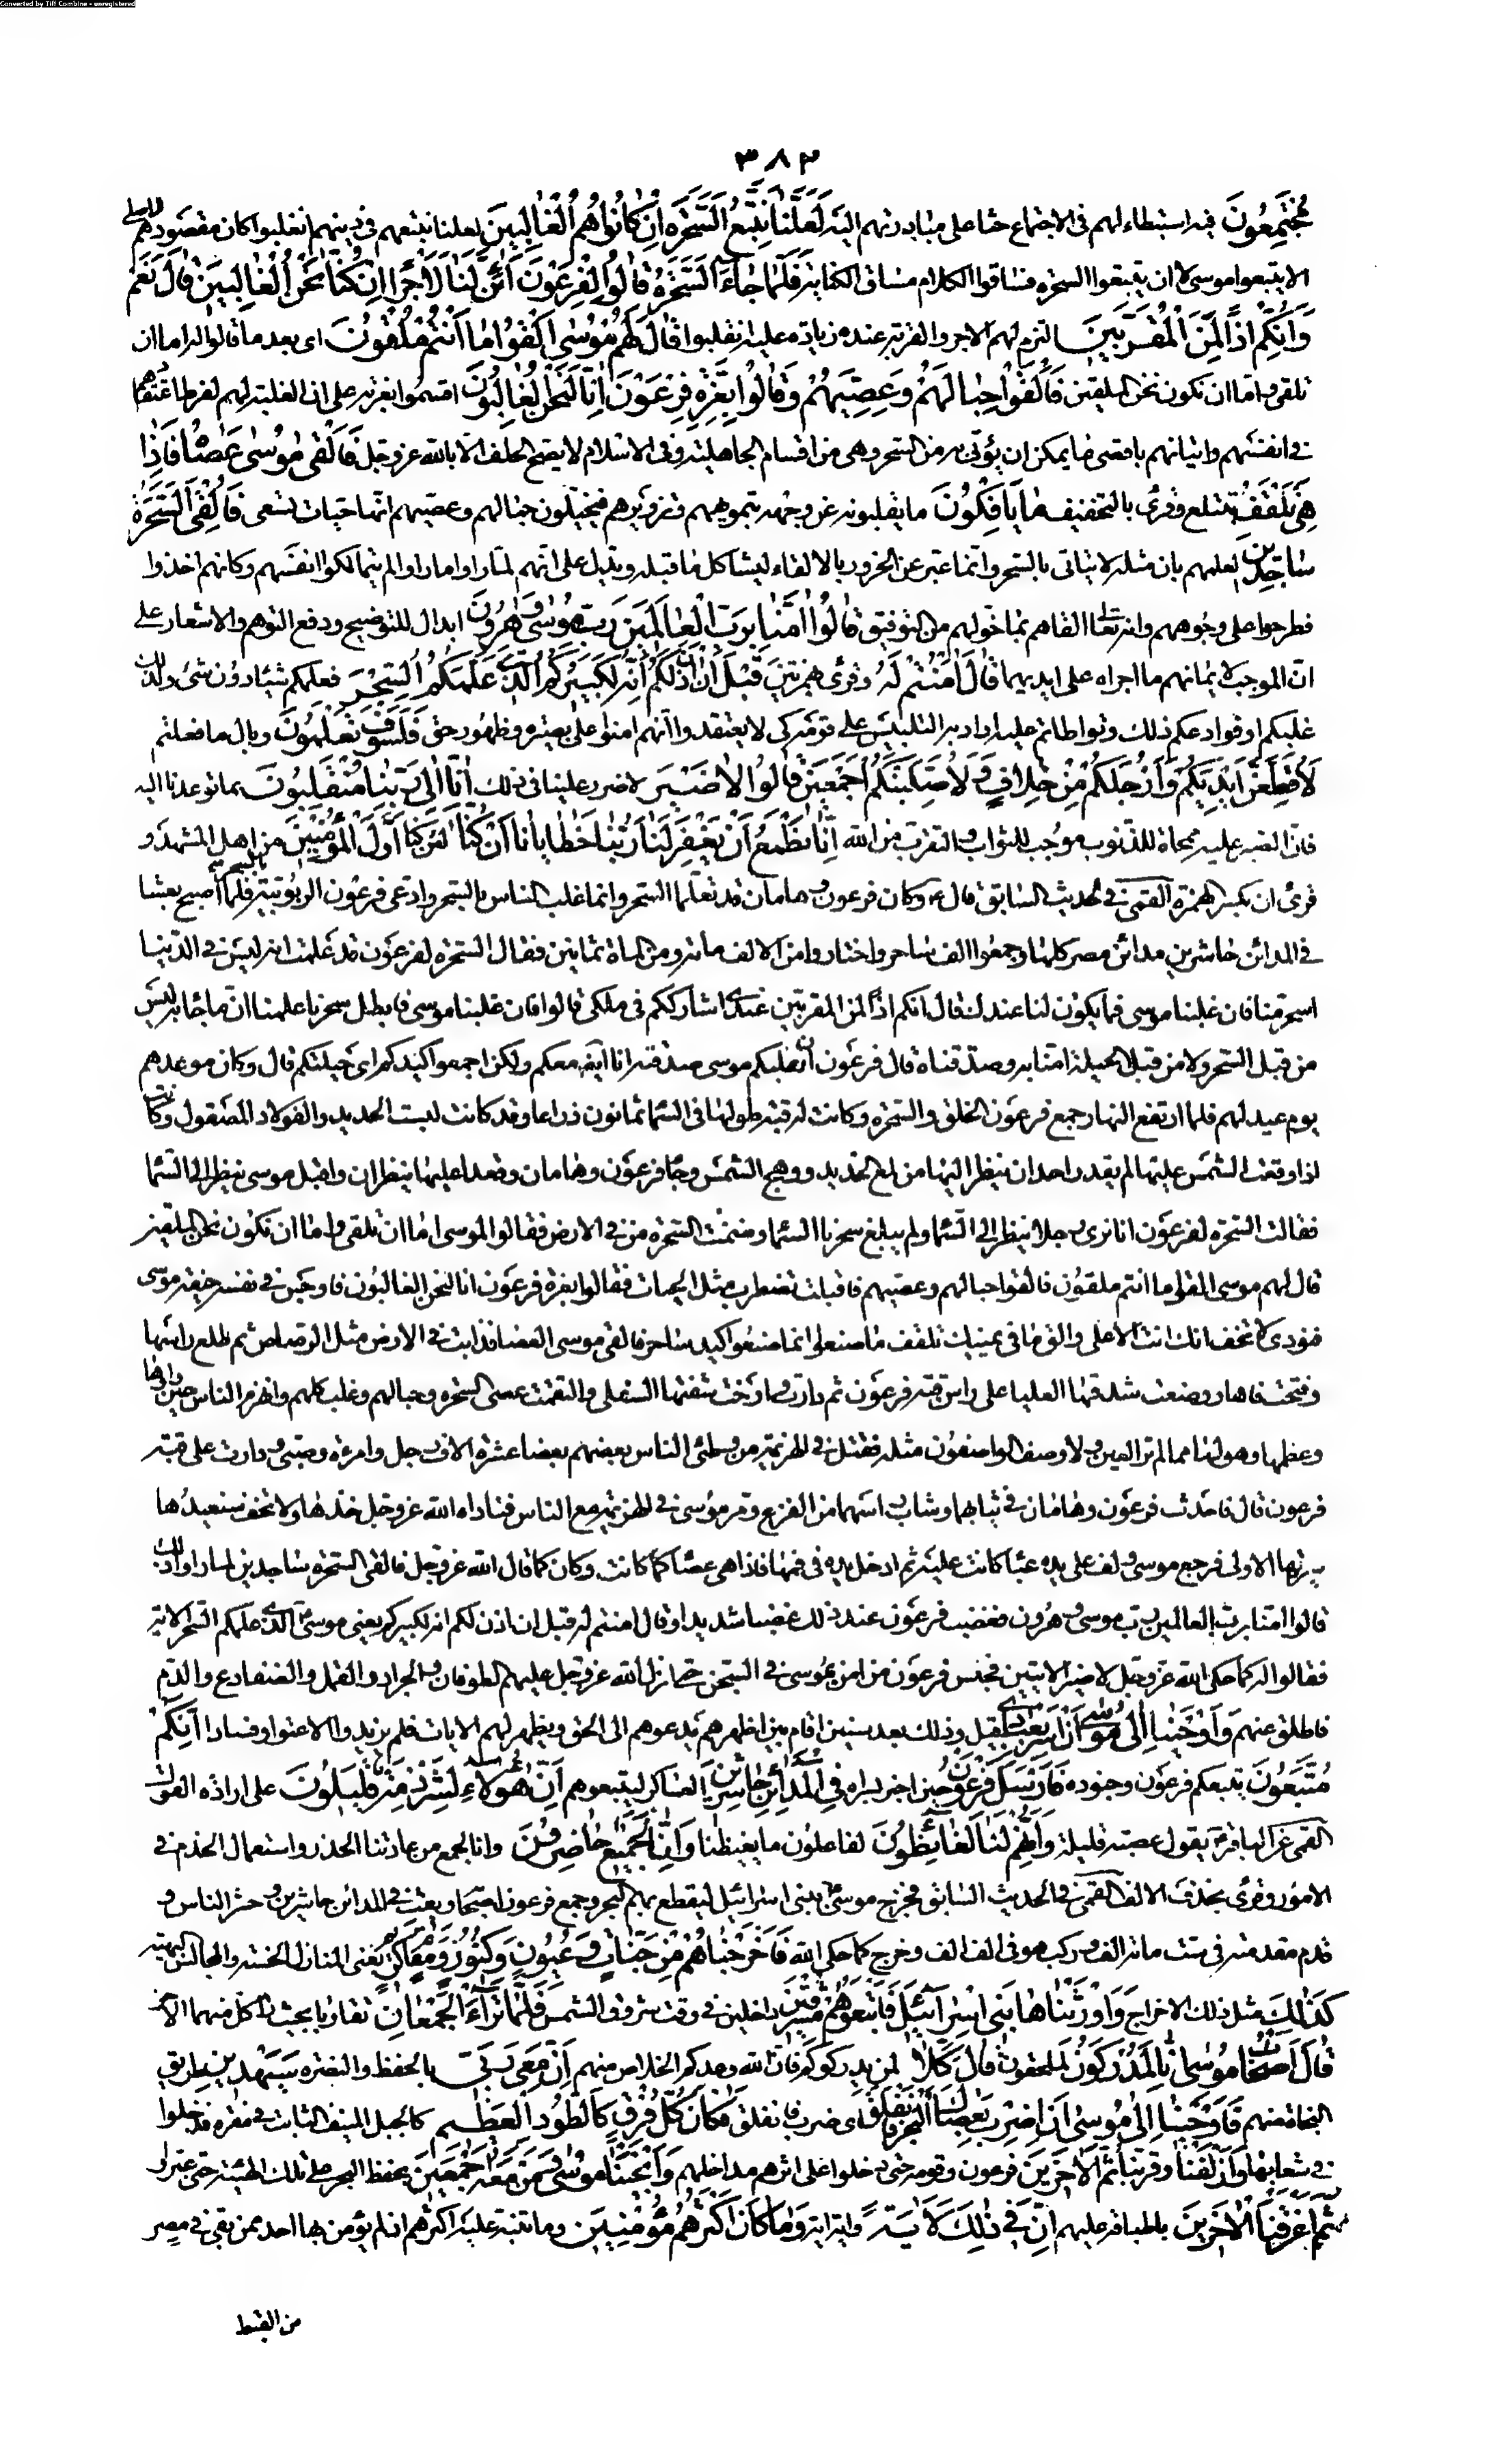 Converted by Tiff Combine - unregistered
٣٨٢
مُجْتَمِعُونَ فيه استبطاء لهم في الاجتماع حثا على مبادرتهم اليه لَعَلَّنَا نَتَّبِعُ السَّحَرَةَ اِنْ كَانُوا هُمُ الْغَالِبِينَ لعلنا نتبعهم في دينهم ان غلبوا كان مقصودهم الاصلي
الا يتبعوا موسى لا ان يتبعوا السحرة فساقوا الكلام مساق الكناية فَلَمَّا جَاءَ السَّحَرَةُ قَالُوا لِفِرْعَوْنَ اَئِنَّ لَنَا لَاَجْرًا اِنْ كُنَّا نَحْنُ الْغَالِبِينَ قَالَ نَعَمْ
وَاِنَّكُمْ اِذًا لَمِنَ الْمُقَرَّبِينَ التزم لهم الاجر والقربة عنده زيادة عليه ان غلبوا قَالَ لَهُمْ مُوسَى اَلْقُوا مَا اَنْتُمْ مُلْقُونَ اى بعد ما قالوا له اما ان
تلقى واما ان نكون نحن الملقين فَاَلْقَوْا حِبَالَهُمْ وَعِصِيَّهُمْ وَقَالُوا بِعِزَّةِ فِرْعَوْنَ اِنَّا لَنَحْنُ الْغَالِبُونَ اقسموا بعزته على ان الغلبة لهم لفرط اعتقادهم
في انفسهم واتيانهم باقصى ما يمكن ان يؤتى به من السحر وهي من اقسام الجاهلية وفي الاسلام لا يصح الحلف الا بالله عز وجل فَاَلْقَى مُوسَى عَصَاهُ فَاِذَا
هِيَ تَلْقَفُ تبتلع وقرئ بالتخفيف مَا يَأْفِكُونَ ما يقلبونه عن وجهه بتمويههم وتزويرهم فيخيلون حبالهم وعصيهم انها حيات تسعى فَاُلْقِيَ السَّحَرَةُ
سَاجِدِينَ لعلمهم بان مثله لا يتاتى بالسحر وانما عبر عن الخرور بالالقاء ليشاكل ما قبله ويدل على انهم لما راوا ما راوا لم يتمالكوا انفسهم وكانهم اخذوا
فطرحوا على وجوههم وانه تعالى القاهم بما خولهم من التوفيق قَالُوا اٰمَنَّا بِرَبِّ الْعَالَمِينَ رَبِّ مُوسَى وَهٰرُونَ ابدال للتوضيح ودفع التوهم والاشعار على
ان الموجب لايمانهم ما اجراه على ايديهما قَالَ اٰمَنْتُمْ لَهُ وقرئ بهمزتين قَبْلَ اَنْ اٰذَنَ لَكُمْ اِنَّهُ لَكَبِيرُكُمُ الَّذِي عَلَّمَكُمُ السِّحْرَ فعلمكم شيئا دون شئ ولذلك
غلبكم او فوادعكم ذلك وتواطاتم عليه اراد به التلبيس على قومه كى لا يعتقدوا انهم امنوا على بصيرة وظهور حق فَلَسَوْفَ تَعْلَمُونَ وبال ما فعلتم
لَاُقَطِّعَنَّ اَيْدِيَكُمْ وَاَرْجُلَكُمْ مِنْ خِلَافٍ وَلَاُصَلِّبَنَّكُمْ اَجْمَعِينَ قَالُوا لَا ضَيْرَ لا ضرر علينا في ذلك اِنَّا اِلَى رَبِّنَا مُنْقَلِبُونَ بما توعدنا اليه
فان الصبر عليه محاة للذنوب موجب للثواب والقرب من الله اِنَّا نَطْمَعُ اَنْ يَغْفِرَ لَنَا رَبُّنَا خَطَايَانَا اَنْ كُنَّا لان كنا اَوَّلَ الْمُؤْمِنِينَ من اهل المشهد و
قرئ ان بكسر الهمزة القمى في الحديث السابق قال ع وكان فرعون وهامان قد تعلما السحر وانما غلبا الناس بالسحر وادعى فرعون الربوبية بالسحر فلما اصبح بعث
في المدائن حاشرين مدائن مصر كلها وجمعوا الف ساحر واختاروا من الالف مائة ومن المائة ثمانين فقال السحرة لفرعون قد علمت انه ليس في الدنيا
اسحر منا فان غلبنا موسى فما يكون لنا عندك قال انكم اذا لمن المقربين عندى اشارككم في ملكى قالوا فان غلبنا موسى وابطل سحرنا علمنا ان ما جاء به ليس
من قبل السحر ولا من قبل الحيلة امنا به وصدقناه قال فرعون ان غلبكم موسى صدقته انا ايضا معكم ولكن اجمعوا كيدكم اى حيلتكم قال وكان موعدهم
يوم عيد لهم فلما ارتفع النهار جمع فرعون الخلق والسحرة وكانت له قبة طولها في السماء ثمانون ذراعا وقد كانت لبست الحديد والفولاذ المصقول وكانت
اذا وقعت الشمس عليها لم يقدر احد ان ينظر اليها من لمع الحديد ووهج الشمس وجاء فرعون وهامان وقعدا عليها ينظران واقبل موسى ينظر الى السماء
فقالت السحرة لفرعون انا نرى رجلا ينظر الى السماء ولم يبلغ سحرنا السماء وضمنت السحرة من في الارض فقالوا لموسى اما ان تلقى واما ان نكون نحن الملقين
قال لهم موسى القوا ما انتم ملقون فالقوا حبالهم وعصيهم فاقبلت تضطرب مثل الحيات فقالوا بعزة فرعون انا لنحن الغالبون فاوجس في نفسه خيفة موسى
فنودى لا تخف انك انت الاعلى والق ما في يمينك تلقف ما صنعوا انما صنعوا كيد ساحر فالقى موسى العصا فذابت في الارض مثل الرصاص ثم طلع راسها
وفتحت فاها ووضعت شدقها العليا على راس قبة فرعون ثم دارت وارخت شفتها السفلى والتقمت عصى السحرة وحبالهم وغلب كلهم وانهزم الناس حين راوها
وعظمها وهولها مما لم تر العين ولا وصف الواصفون مثله فقتل في الهزيمة من وطئ الناس بعضهم بعضا عشرة الاف رجل وامرءة وصبى ودارت على قبة
فرعون قال فاحدث فرعون وهامان في ثيابهما وشاب راسهما من الفزع ومر موسى في الهزيمة مع الناس فناداه الله عز وجل خذها ولا تخف سنعيدها
سيرتها الاولى فرجع موسى ولف على يده عباء كانت عليه ثم ادخل يده في فمها فاذا هى عصا كما كانت وكان كما قال الله عز وجل فالقى السحرة ساجدين لما راوا ذلك
قالوا امنا برب العالمين رب موسى وهرون فغضب فرعون عند ذلك غضبا شديدا وقال امنتم له قبل ان اذن لكم انه لكبيركم يعنى موسى الذى علمكم السحر الاية
فقالوا له كما حكى الله عز وجل لا ضير الايتين فحبس فرعون من امن بموسى في السجن حتى انزل الله عز وجل عليهم الطوفان والجراد والقمل والضفادع والدم
فاطلق عنهم وَاَوْحَيْنَا اِلَى مُوسَى اَنْ اَسْرِ بِعِبَادِى قيل وذلك بعد سنين اقام بين اظهرهم يدعوهم الى الحق ويظهر لهم الايات فلم يزيدوا الا عتوا وفسادا اِنَّكُمْ
مُتَّبَعُونَ يتبعكم فرعون وجنوده فَاَرْسَلَ فِرْعَوْنُ حين اخبر بسراه فِي الْمَدَائِنِ حَاشِرِينَ العساكر ليتبعوهم اِنَّ هٰؤُلَاءِ لَشِرْذِمَةٌ قَلِيلُونَ على ارادة القول
القمى عن الباقر ع يقول عصبة قليلة وَاِنَّهُمْ لَنَا لَغَائِظُونَ لفاعلون ما يغيظنا وَاِنَّا لَجَمِيعٌ حَاذِرُونَ وانا لجمع من عادتنا الحذر واستعمال الحزم في
الامور وقرئ بحذف الالف القمى في الحديث السابق فخرج موسى ببنى اسرائيل ليقطع بهم البحر وجمع فرعون اصحابه وبعث في المدائن حاشرين وحشر الناس و
قدم مقدمته في ست مائة الف وركب هو في الف الف وخرج كما حكى الله فَاَخْرَجْنَاهُمْ مِنْ جَنَّاتٍ وَعُيُونٍ وَكُنُوزٍ وَمَقَامٍ كَرِيمٍ يعنى المنازل الحسنة والمجالس البهية
كَذٰلِكَ مثل ذلك الاخراج وَاَوْرَثْنَاهَا بَنِي اِسْرَائِيلَ فَاَتْبَعُوهُمْ مُشْرِقِينَ داخلين في وقت شروق الشمس فَلَمَّا تَرَاءَ الْجَمْعَانِ تقاربا بحيث راى كل منهما الاخر
قَالَ اَصْحَابُ مُوسَى اِنَّا لَمُدْرَكُونَ لملحقون قَالَ كَلَّا لن يدركوكم فان الله وعدكم الخلاص منهم اِنَّ مَعِيَ رَبِّي بالحفظ والنصرة سَيَهْدِينِ طريق
النجاة منهم فَاَوْحَيْنَا اِلَى مُوسَى اَنِ اضْرِبْ بِعَصَاكَ الْبَحْرَ فَانْفَلَقَ اى ضرب فانفلق فَكَانَ كُلُّ فِرْقٍ كَالطَّوْدِ الْعَظِيمِ كالجبل المنيف الثابت في مقره فدخلوا
في شعابها وَاَزْلَفْنَا وقربنا ثَمَّ الْاٰخَرِينَ فرعون وقومه حتى دخلوا على اثرهم مداخلهم وَاَنْجَيْنَا مُوسَى وَمَنْ مَعَهُ اَجْمَعِينَ بحفظ البحر على تلك الهيئة حتى عبروا
ثُمَّ اَغْرَقْنَا الْاٰخَرِينَ باطباقه عليهم اِنَّ فِي ذٰلِكَ لَاٰيَةً واية اية وَمَا كَانَ اَكْثَرُهُمْ مُؤْمِنِينَ وما تنبه عليه اكثرهم اذ لم يؤمن بها احد ممن بقى في مصر
من القبط